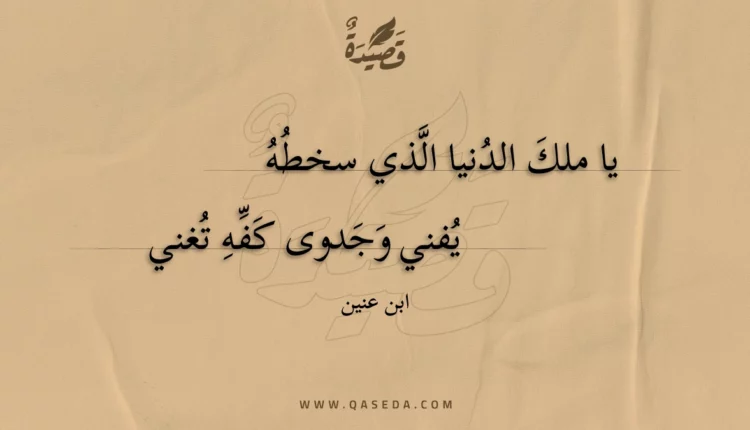 قَصِيْدَةٌ
يا ملكَ الدُنيا الَّذي سخطُهُ
يُفني وَجَدوى كَفِّهِ تُغني
ابن عنين
WWW.QASEDA.COM